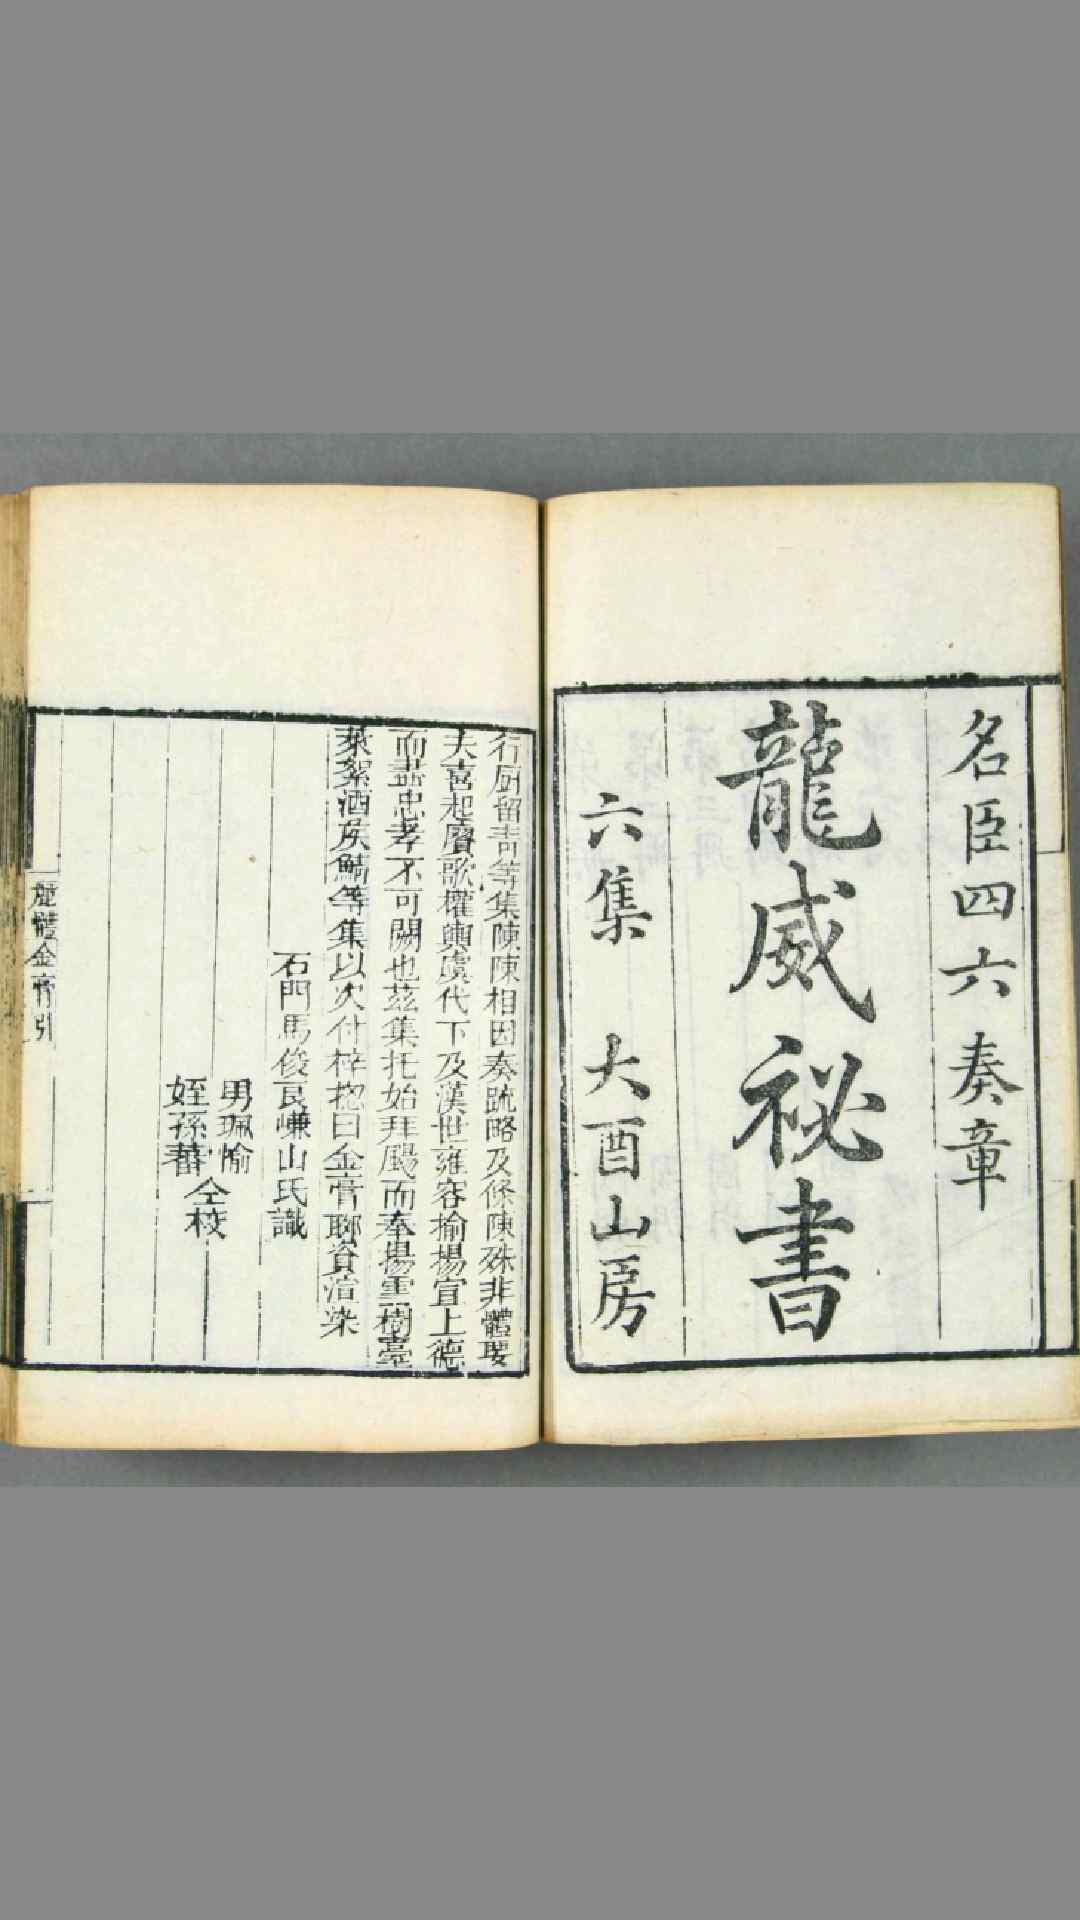 名臣四六奏章
龍威祕書
六集 大酉山房
行廚留青等集陳陳相因奏疏略及條陳殊非體要
夫喜起賡歌權輿虞代下及漢世雍容揄揚宣上德
而盡忠孝不可闕也茲集托始拜颺而奉揚雲樹臺
萊絮酒矦鯖等集以次付梓揔曰金膏聊資渲染
石門馬俊良嵰山氏識
男珮愉
姪孫蕃
仝校
麗體金膏引